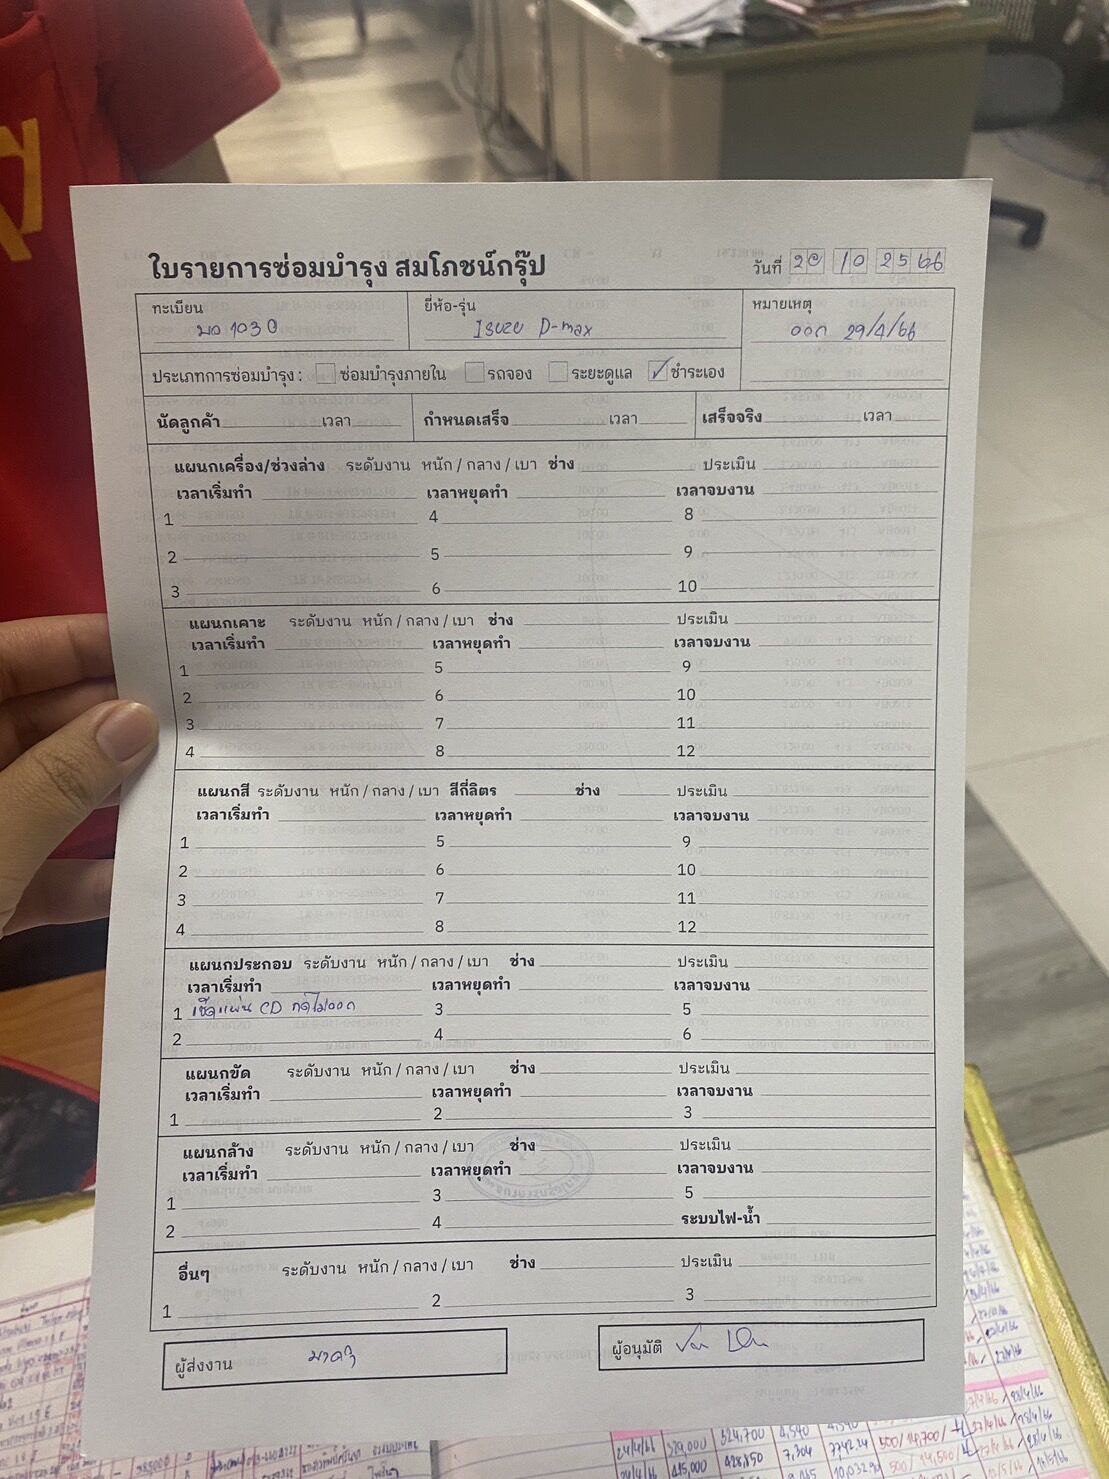 ใบรายการซ่อมบำรุง สมโภชน์กรุ๊ป
วันที่ 20 10 2566
ทะเบียน
ยี่ห้อ-รุ่น
หมายเหตุ
Isuzu D-max
ออก 29/4/66
ประเภทการซ่อมบำรุง : ซ่อมบำรุงภายใน รถจอง ระยะดูแล ✓ ชำระเอง
นัดลูกค้า เวลา กำหนดเสร็จ เวลา เสร็จจริง เวลา
แผนกเครื่อง/ช่วงล่าง ระดับงาน หนัก / กลาง / เบา ช่าง ประเมิน
เวลาเริ่มทำ เวลาหยุดทำ เวลาจบงาน
1 4 8
2 5 9
3 6 10
แผนกเคาะ ระดับงาน หนัก / กลาง / เบา ช่าง ประเมิน
เวลาเริ่มทำ เวลาหยุดทำ เวลาจบงาน
1 5 9
2 6 10
3 7 11
4 8 12
แผนกสี ระดับงาน หนัก / กลาง / เบา สีกี่ลิตร ช่าง ประเมิน
เวลาเริ่มทำ เวลาหยุดทำ เวลาจบงาน
1 5 9
2 6 10
3 7 11
4 8 12
แผนกประกอบ ระดับงาน หนัก / กลาง / เบา ช่าง ประเมิน
เวลาเริ่มทำ เวลาหยุดทำ เวลาจบงาน
1 เช็คแผ่น CD กดไม่ออก 3 5
2 4 6
แผนกขัด ระดับงาน หนัก / กลาง / เบา ช่าง ประเมิน
เวลาเริ่มทำ เวลาหยุดทำ เวลาจบงาน
1 2 3
แผนกล้าง ระดับงาน หนัก / กลาง / เบา ช่าง ประเมิน
เวลาเริ่มทำ เวลาหยุดทำ เวลาจบงาน
1 3 5
2 4 ระบบไฟ-น้ำ
อื่นๆ ระดับงาน หนัก / กลาง / เบา ช่าง ประเมิน
1 2 3
ผู้ส่งงาน
ผู้อนุมัติ
24/4/66 329,000 324,700